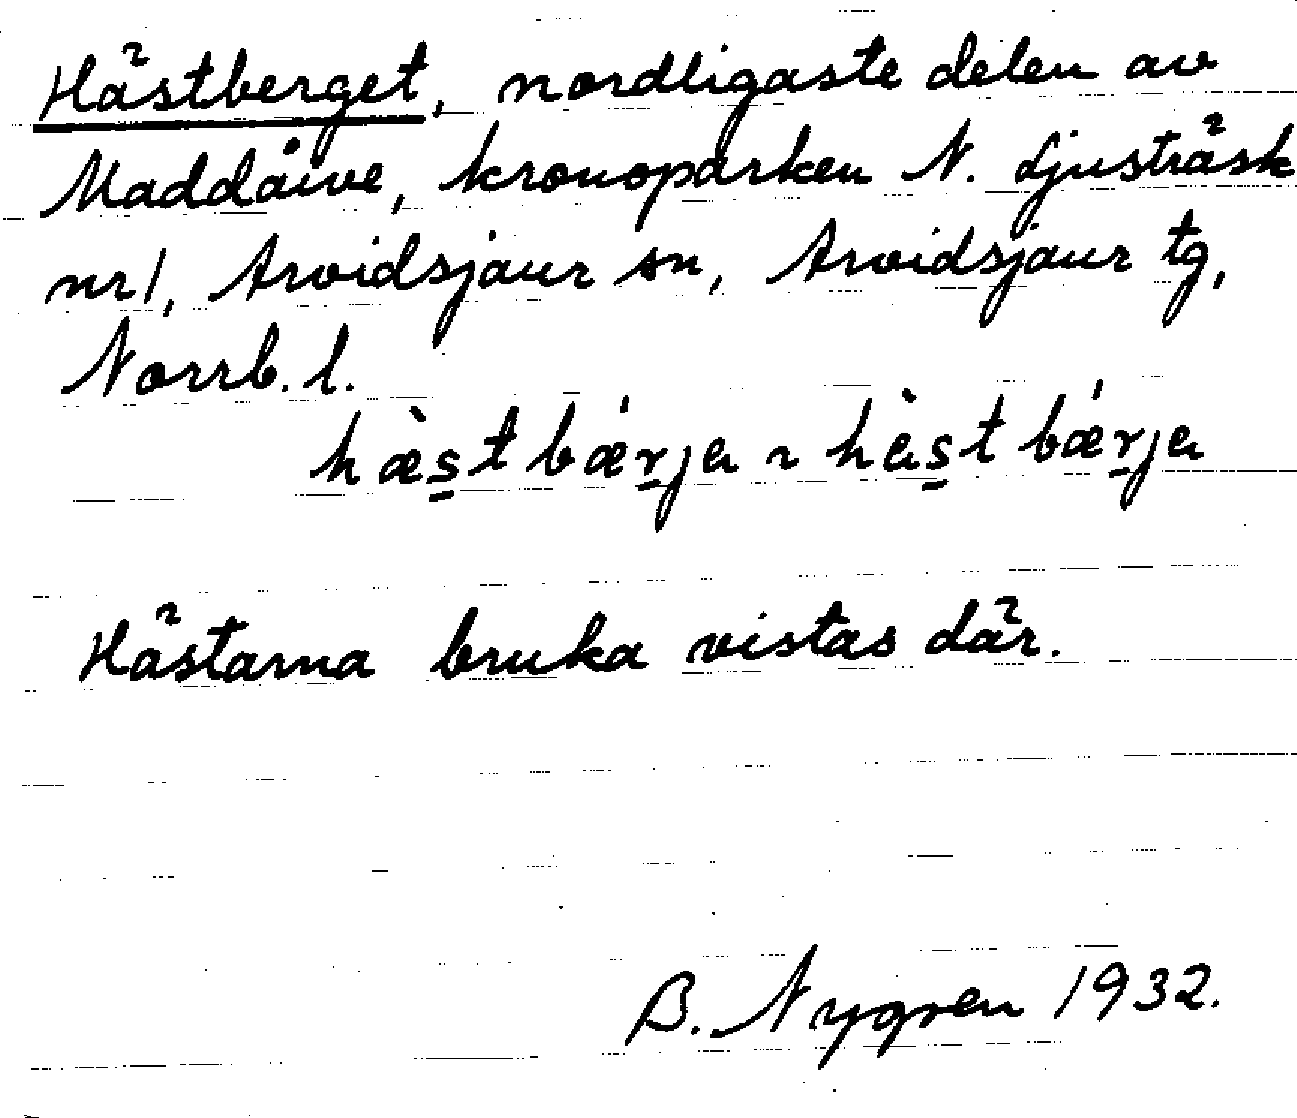 Hästberget, nordligaste delen av
Maddåive, kronoparken N. Ljusträsk
nr 1, Arvidsjaur sn, Arvidsjaur tg,
Norrb. l.
hæ̀s̠t bǽr̠ja ~ hàs̠t bǽr̠ja
Hästarna bruka vistas där.
B. Nygren 1932.